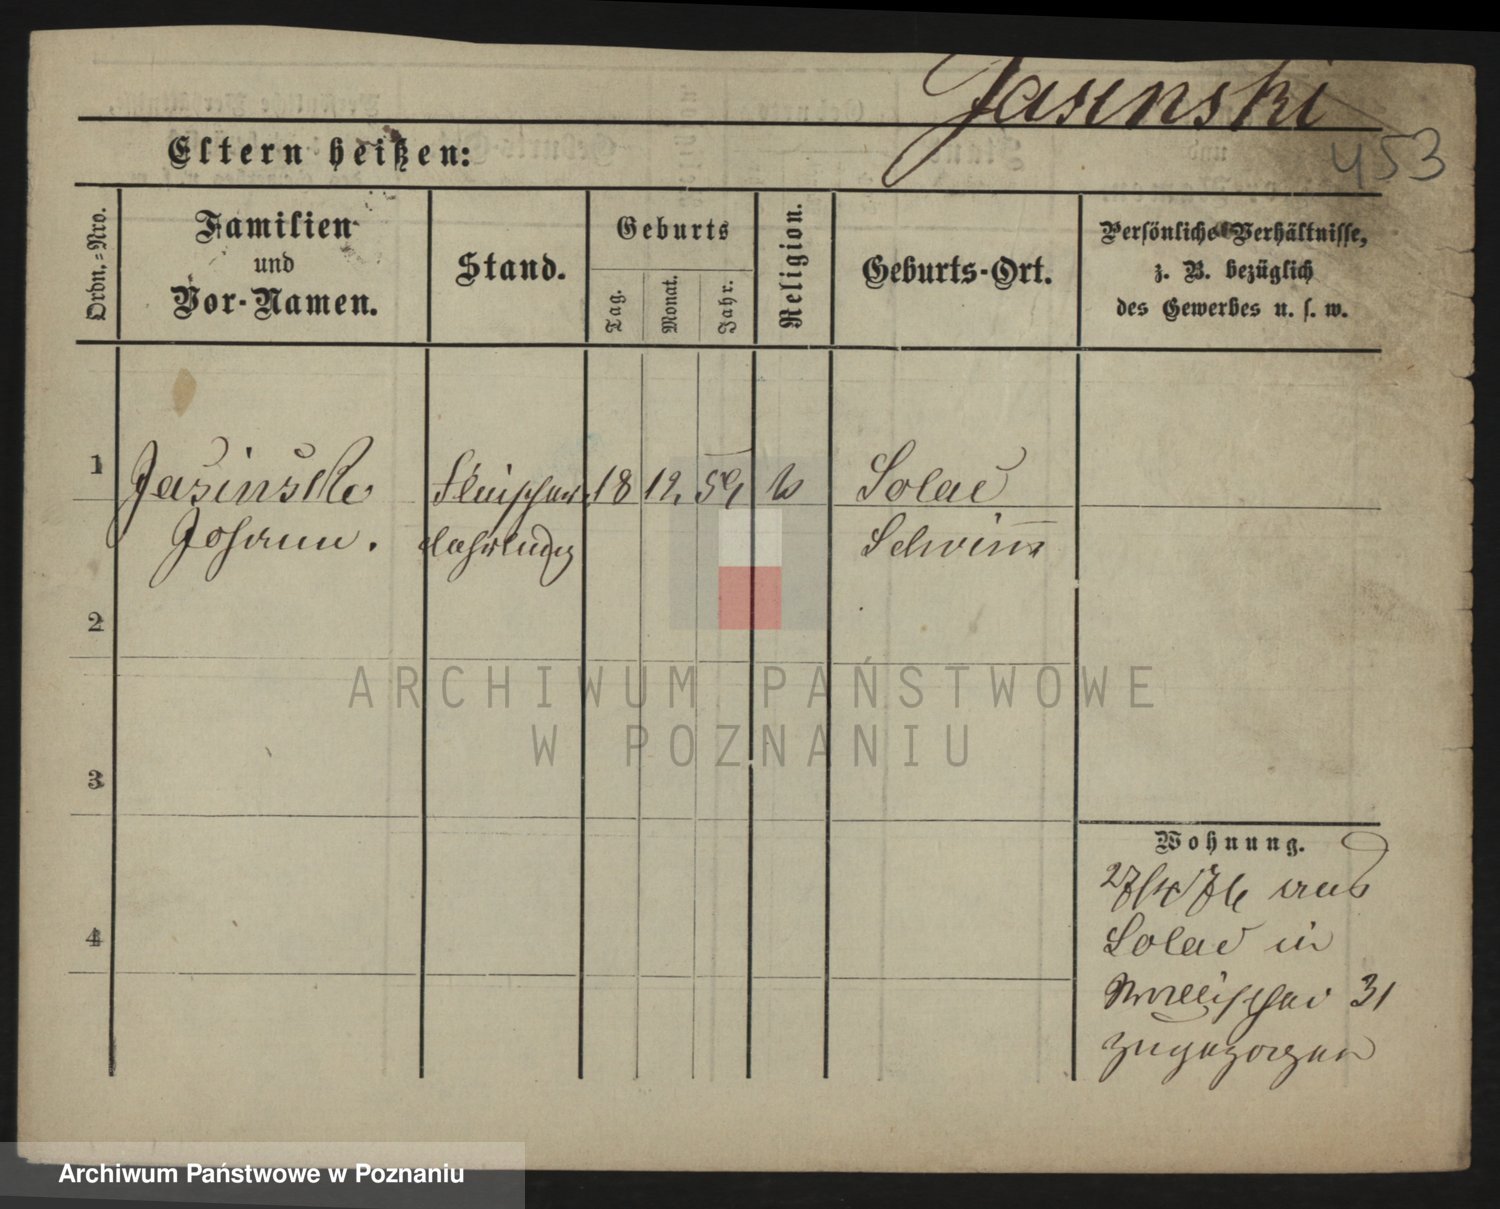 Jasinski
453
Eltern heißen:
Ordn.=Nro.
Familien
und
Vor-Namen.
Stand.
Geburts
Tag.
Monat.
Jahr.
Religion.
Geburts-Ort.
Persönliche Verhältnisse,
z. B. bezüglich
des Gewerbes u. s. w.
1 Jasinski Fleischer 18 12. 59 k Solac
Johann. lehrling Schwim
2
3
4
Wohnung.
27/4 76 aus
Solac in
Wallischei 31
zugezogen
ARCHIWUM PAŃSTWOWE
W POZNANIU
Archiwum Państwowe w Poznaniu